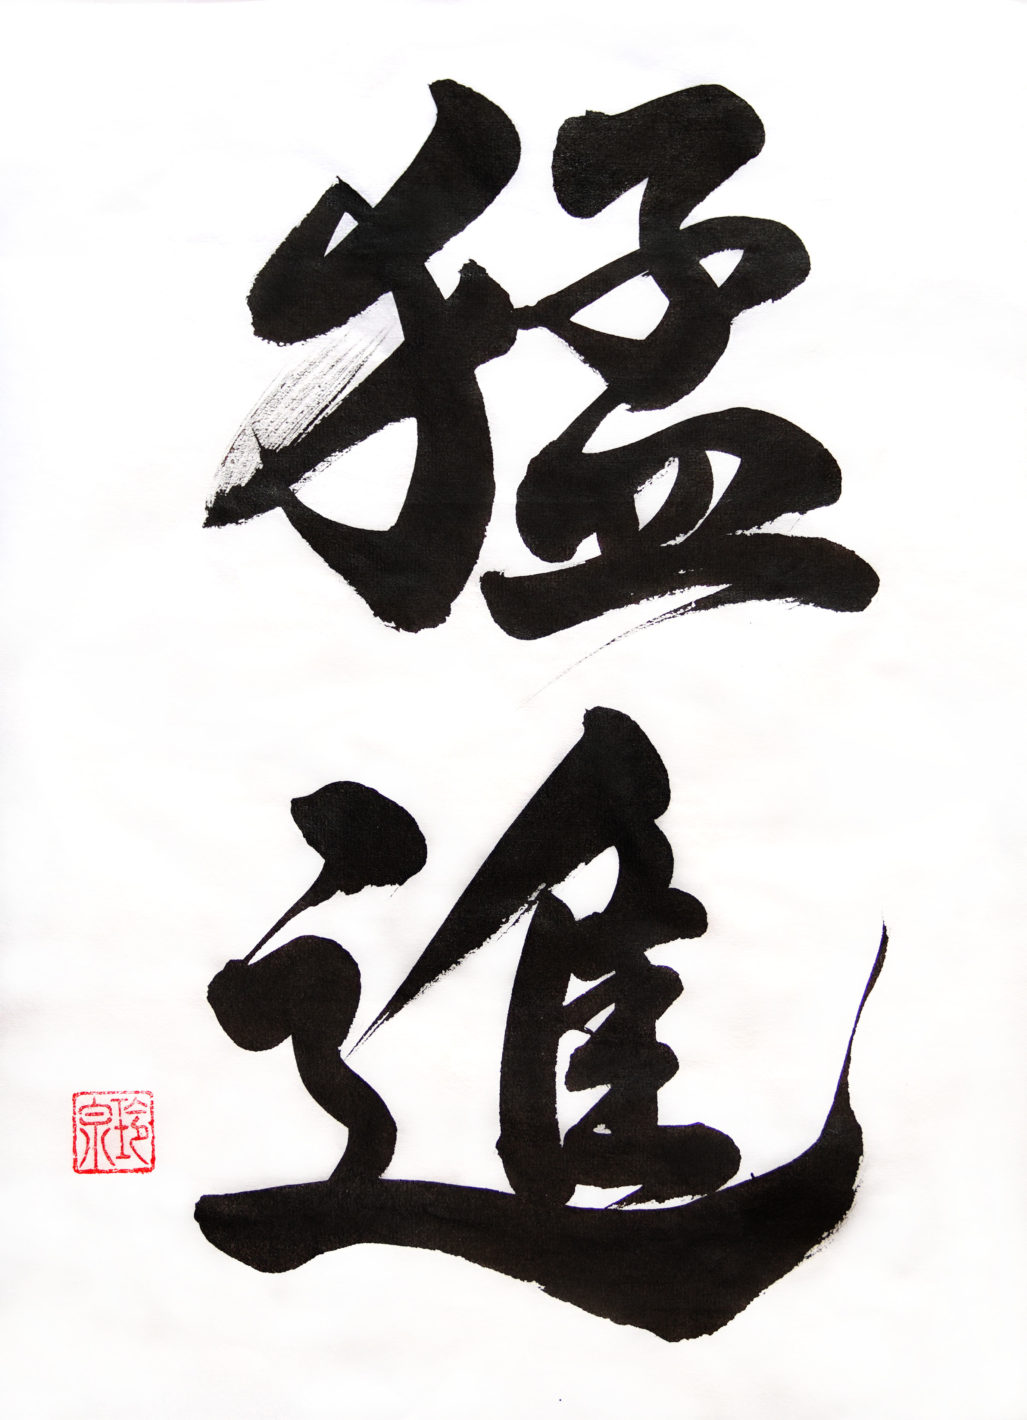 猛進
玲泉